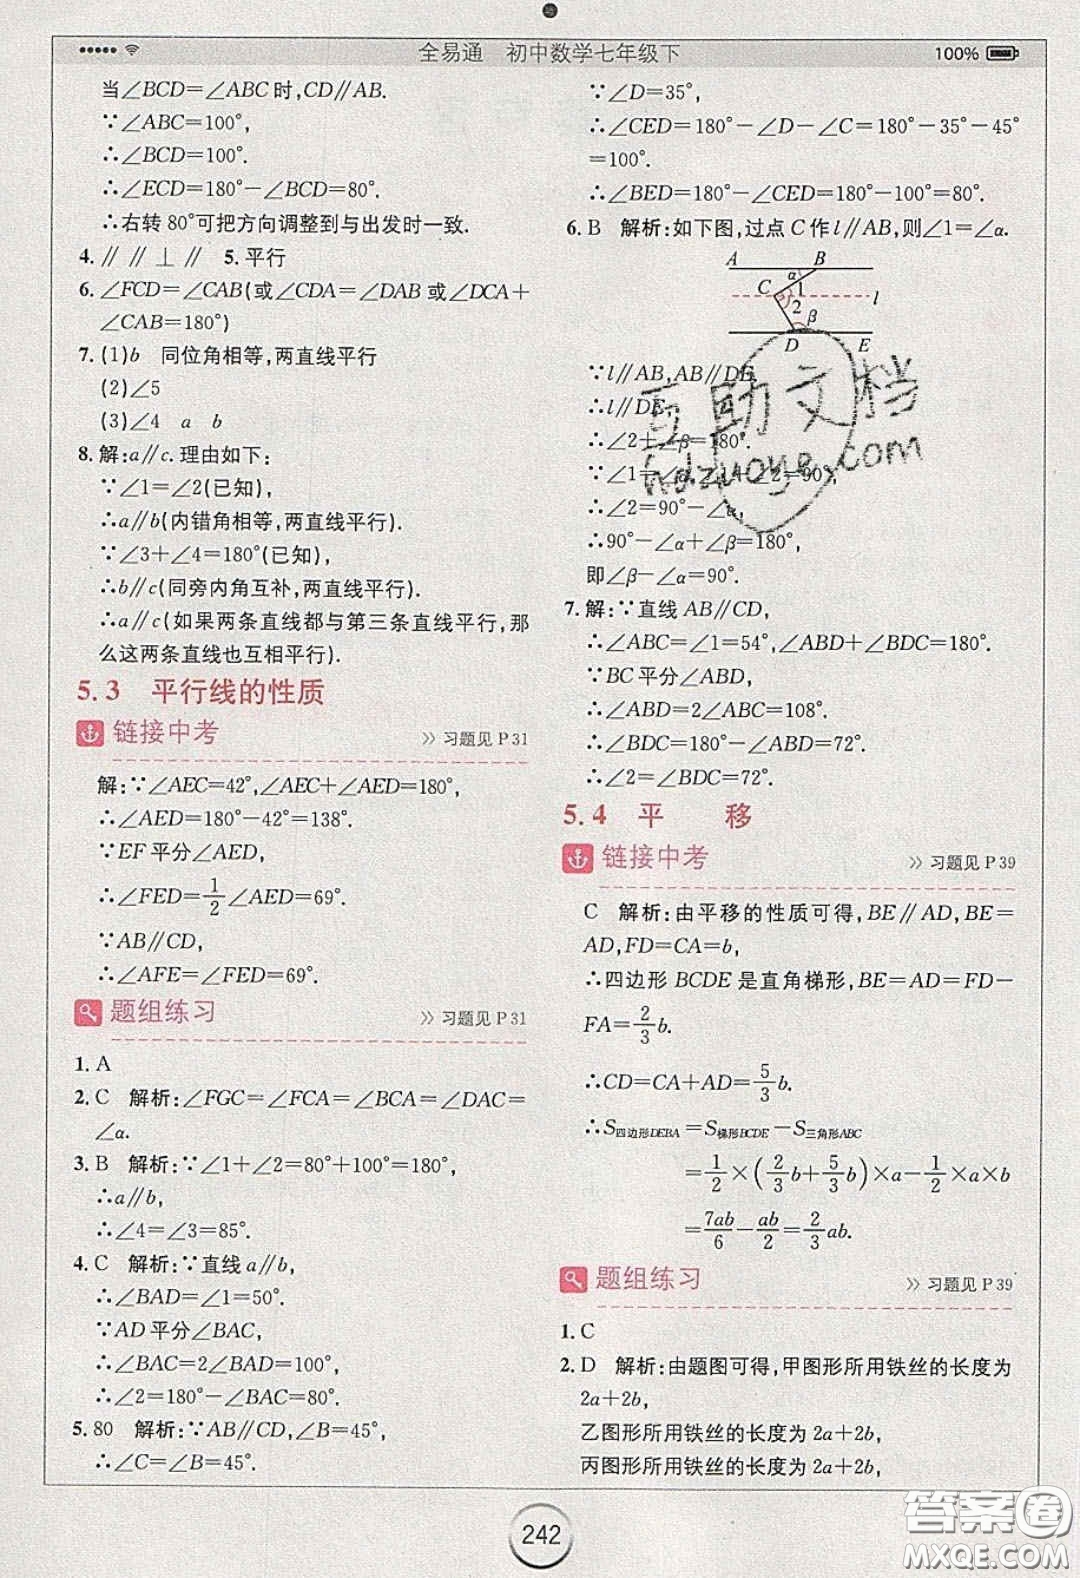 全易通 初中数学七年级下 100%
当∠BCD=∠ABC时,CD∥AB.
∵∠ABC=100°,
∴∠BCD=100°.
∴∠ECD=180°-∠BCD=80°.
∴右转80°可把方向调整到与出发时一致.
4.∥ ∥ ⊥ ∥ 5.平行
6.∠FCD=∠CAB(或∠CDA=∠DAB或∠DCA+
∠CAB=180°)
7.(1)b 同位角相等,两直线平行
(2)∠5
(3)∠4 a b
8.解:a∥c.理由如下:
∵∠1=∠2(已知),
∴a∥b(内错角相等,两直线平行).
∵∠3+∠4=180°(已知),
∴b∥c(同旁内角互补,两直线平行).
∴a∥c(如果两条直线都与第三条直线平行,那
么这两条直线也互相平行).
5.3 平行线的性质
链接中考 >> 习题见P31
解:∵∠AEC=42°,∠AEC+∠AED=180°,
∴∠AED=180°-42°=138°.
∵EF平分∠AED,
∴∠FED=1/2∠AED=69°.
∵AB∥CD,
∴∠AFE=∠FED=69°.
题组练习 >> 习题见P31
1.A
2.C 解析:∠FGC=∠FCA=∠BCA=∠DAC=
∠α.
3.B 解析:∵∠1+∠2=80°+100°=180°,
∴a∥b,
∴∠4=∠3=85°.
4.C 解析:∵直线a∥b,
∴∠BAD=∠1=50°.
∵AD平分∠BAC,
∴∠BAC=2∠BAD=100°,
∴∠2=180°-∠BAC=80°.
5.80 解析:∵AB∥CD,∠B=45°,
∴∠C=∠B=45°.
∵∠D=35°,
∴∠CED=180°-∠D-∠C=180°-35°-45°
=100°.
∴∠BED=180°-∠CED=180°-100°=80°.
6.B 解析:如下图,过点C作l∥AB,则∠1=∠α.
A B
α
C 1 l
2
β
D E
∵l∥AB,AB∥DE,
∴l∥DE,
∴∠2+∠β=180°.
∵∠1=∠α,∠1+∠2=90°,
∴∠2=90°-∠α,
∴90°-∠α+∠β=180°,
即∠β-∠α=90°.
7.解:∵直线AB∥CD,
∴∠ABC=∠1=54°,∠ABD+∠BDC=180°.
∵BC平分∠ABD,
∴∠ABD=2∠ABC=108°.
∴∠BDC=180°-∠ABD=72°.
∴∠2=∠BDC=72°.
5.4 平 移
链接中考 >> 习题见P39
C 解析:由平移的性质可得,BE∥AD,BE=
AD,FD=CA=b,
∴四边形BCDE是直角梯形,BE=AD=FD-
FA=2/3b.
∴CD=CA+AD=5/3b.
∴S四边形DEBA=S梯形BCDE-S三角形ABC
=1/2×(2/3b+5/3b)×a-1/2×a×b
=7ab/6-ab/2=2/3ab.
题组练习 >> 习题见P39
1.C
2.D 解析:由题图可得,甲图形所用铁丝的长度为
2a+2b,
乙图形所用铁丝的长度为2a+2b,
丙图形所用铁丝的长度为2a+2b,
242
互助文档
hdzuoye.com
答案圈
MXQE.COM